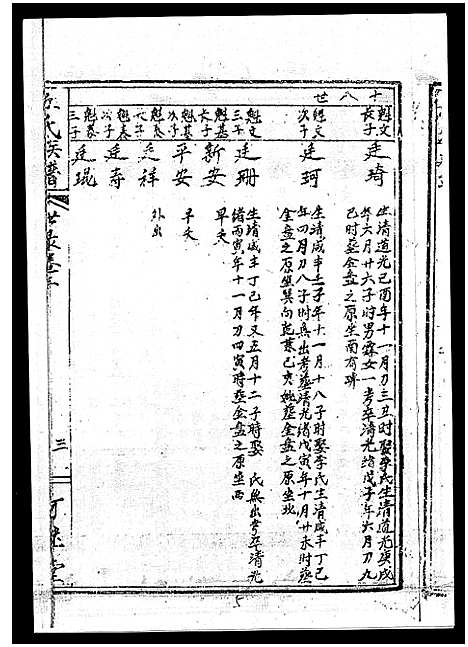 十八世
魁文長子
廷琦
生清道光己酉年十一月刀三丑时娶李氏生清道光庚戌
年六月廿六子时男霖女一考卒清光绪戊子年六月刀九
己时塟金盘之原坐南有碑
魁文次子
廷珂
生清咸丰壬子年十一月十八子时娶李氏生清咸丰丁己
年四月刀八子时無出考塟清光绪戊寅年十月廿未时塟
金盘之原坐巽向乾葉己亥妣塟金盘之原坐北
魁文三子
廷珊
生清咸丰丁己年又五月十二子時娶 氏無出考卒清光
绪丙寅年十一月刀四寅時塟金盘之原坐西
魁基長子
新安
早夭
魁基次子
平安
早夭
魁泰長子
廷祥
外出
魁泰次子
廷寿
魁泰三子
廷琨
氏族譜
世录卷
三